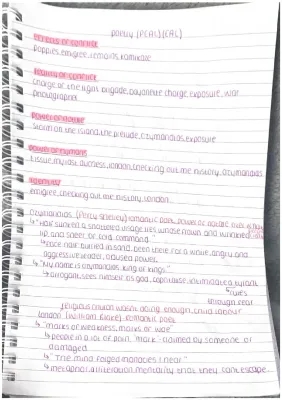 poetry (PCAL) (CAL)
effects of conflict
Poppies, emigree, remains, kamikaze
reality of conflict
charge of the light brigade, bayonette charge, exposure, war
photographer
power of nature
storm on the island, the prelude, ozymandias, exposure
power of humans
tissue, my last duchess, london, checking out me history, ozymandias
identity
emigree, checking out me history, london
ozymandias (Percy Shelley) romantic poet, power of nature
"Half sunk a shattered visage lies whose frown and wrinkled
lip, and sneer of cold command."
face half buried in sand, been there for a while, angry and
aggressive leader, abused power
"My name is ozymandias, king of kings."
arrogant, sees himself as god, capitalise, intimidated tyrant
rules
through fear
religious, church wasn't doing enough, child labour
london (William Blake) - romantic poet
"marks of weakness, marks of woe"
people in a lot of pain, "mark" - claimed by someone or
damaged
"The mind forged manacles I hear"
metaphor, alliteration, mentality that they cant escape...